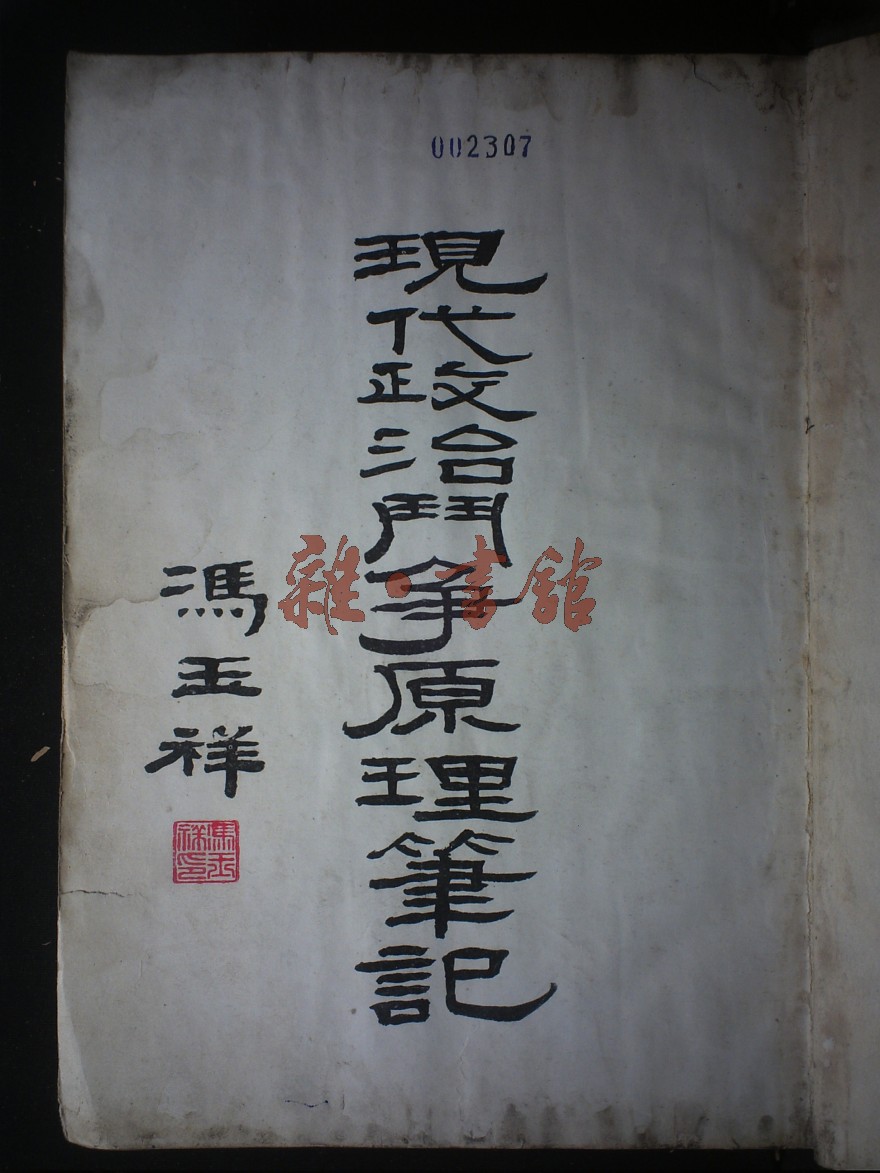 002307
現代政治鬥爭原理筆記
馮玉祥
馮玉祥印
雜·書館